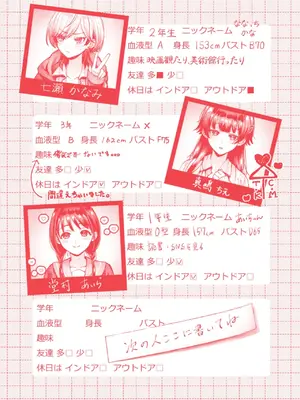 学年 2年生 ニックネーム ななっち かな
血液型 A 身長 153cm バスト B70
趣味 映画観たり、美術館行ったり
友達 多■ 少□
休日は インドア□ アウトドア■
七瀬 かなみ
学年 3年 ニックネーム ×
血液型 B 身長 162cm バスト F75
趣味
友達 多□ 少☑
休日は インドア☑ アウトドア□
間違えちゃいました。
学年 1年生 ニックネーム
血液型 O型 身長 157cm バスト
趣味 読書
友達 多□ 少☑
休日は インドア☑ アウトドア□
学年 ニックネーム
血液型 身長 バスト
趣味
友達 多□ 少□
休日は インドア□ アウトドア□
次の人ここに書いてね